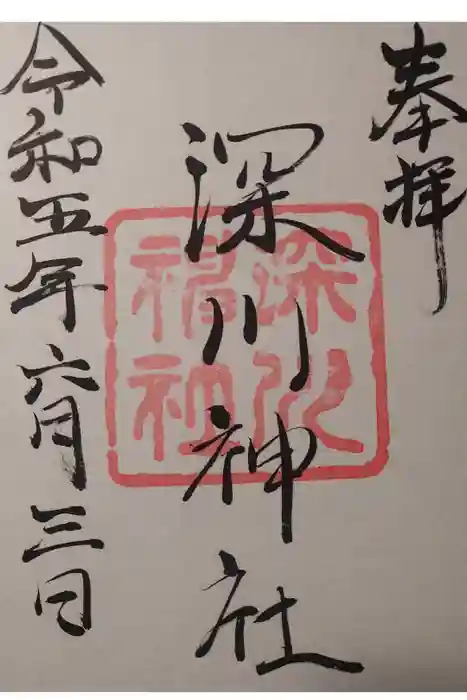 奉拝
深川神社
令和五年六月三日
深川
神社